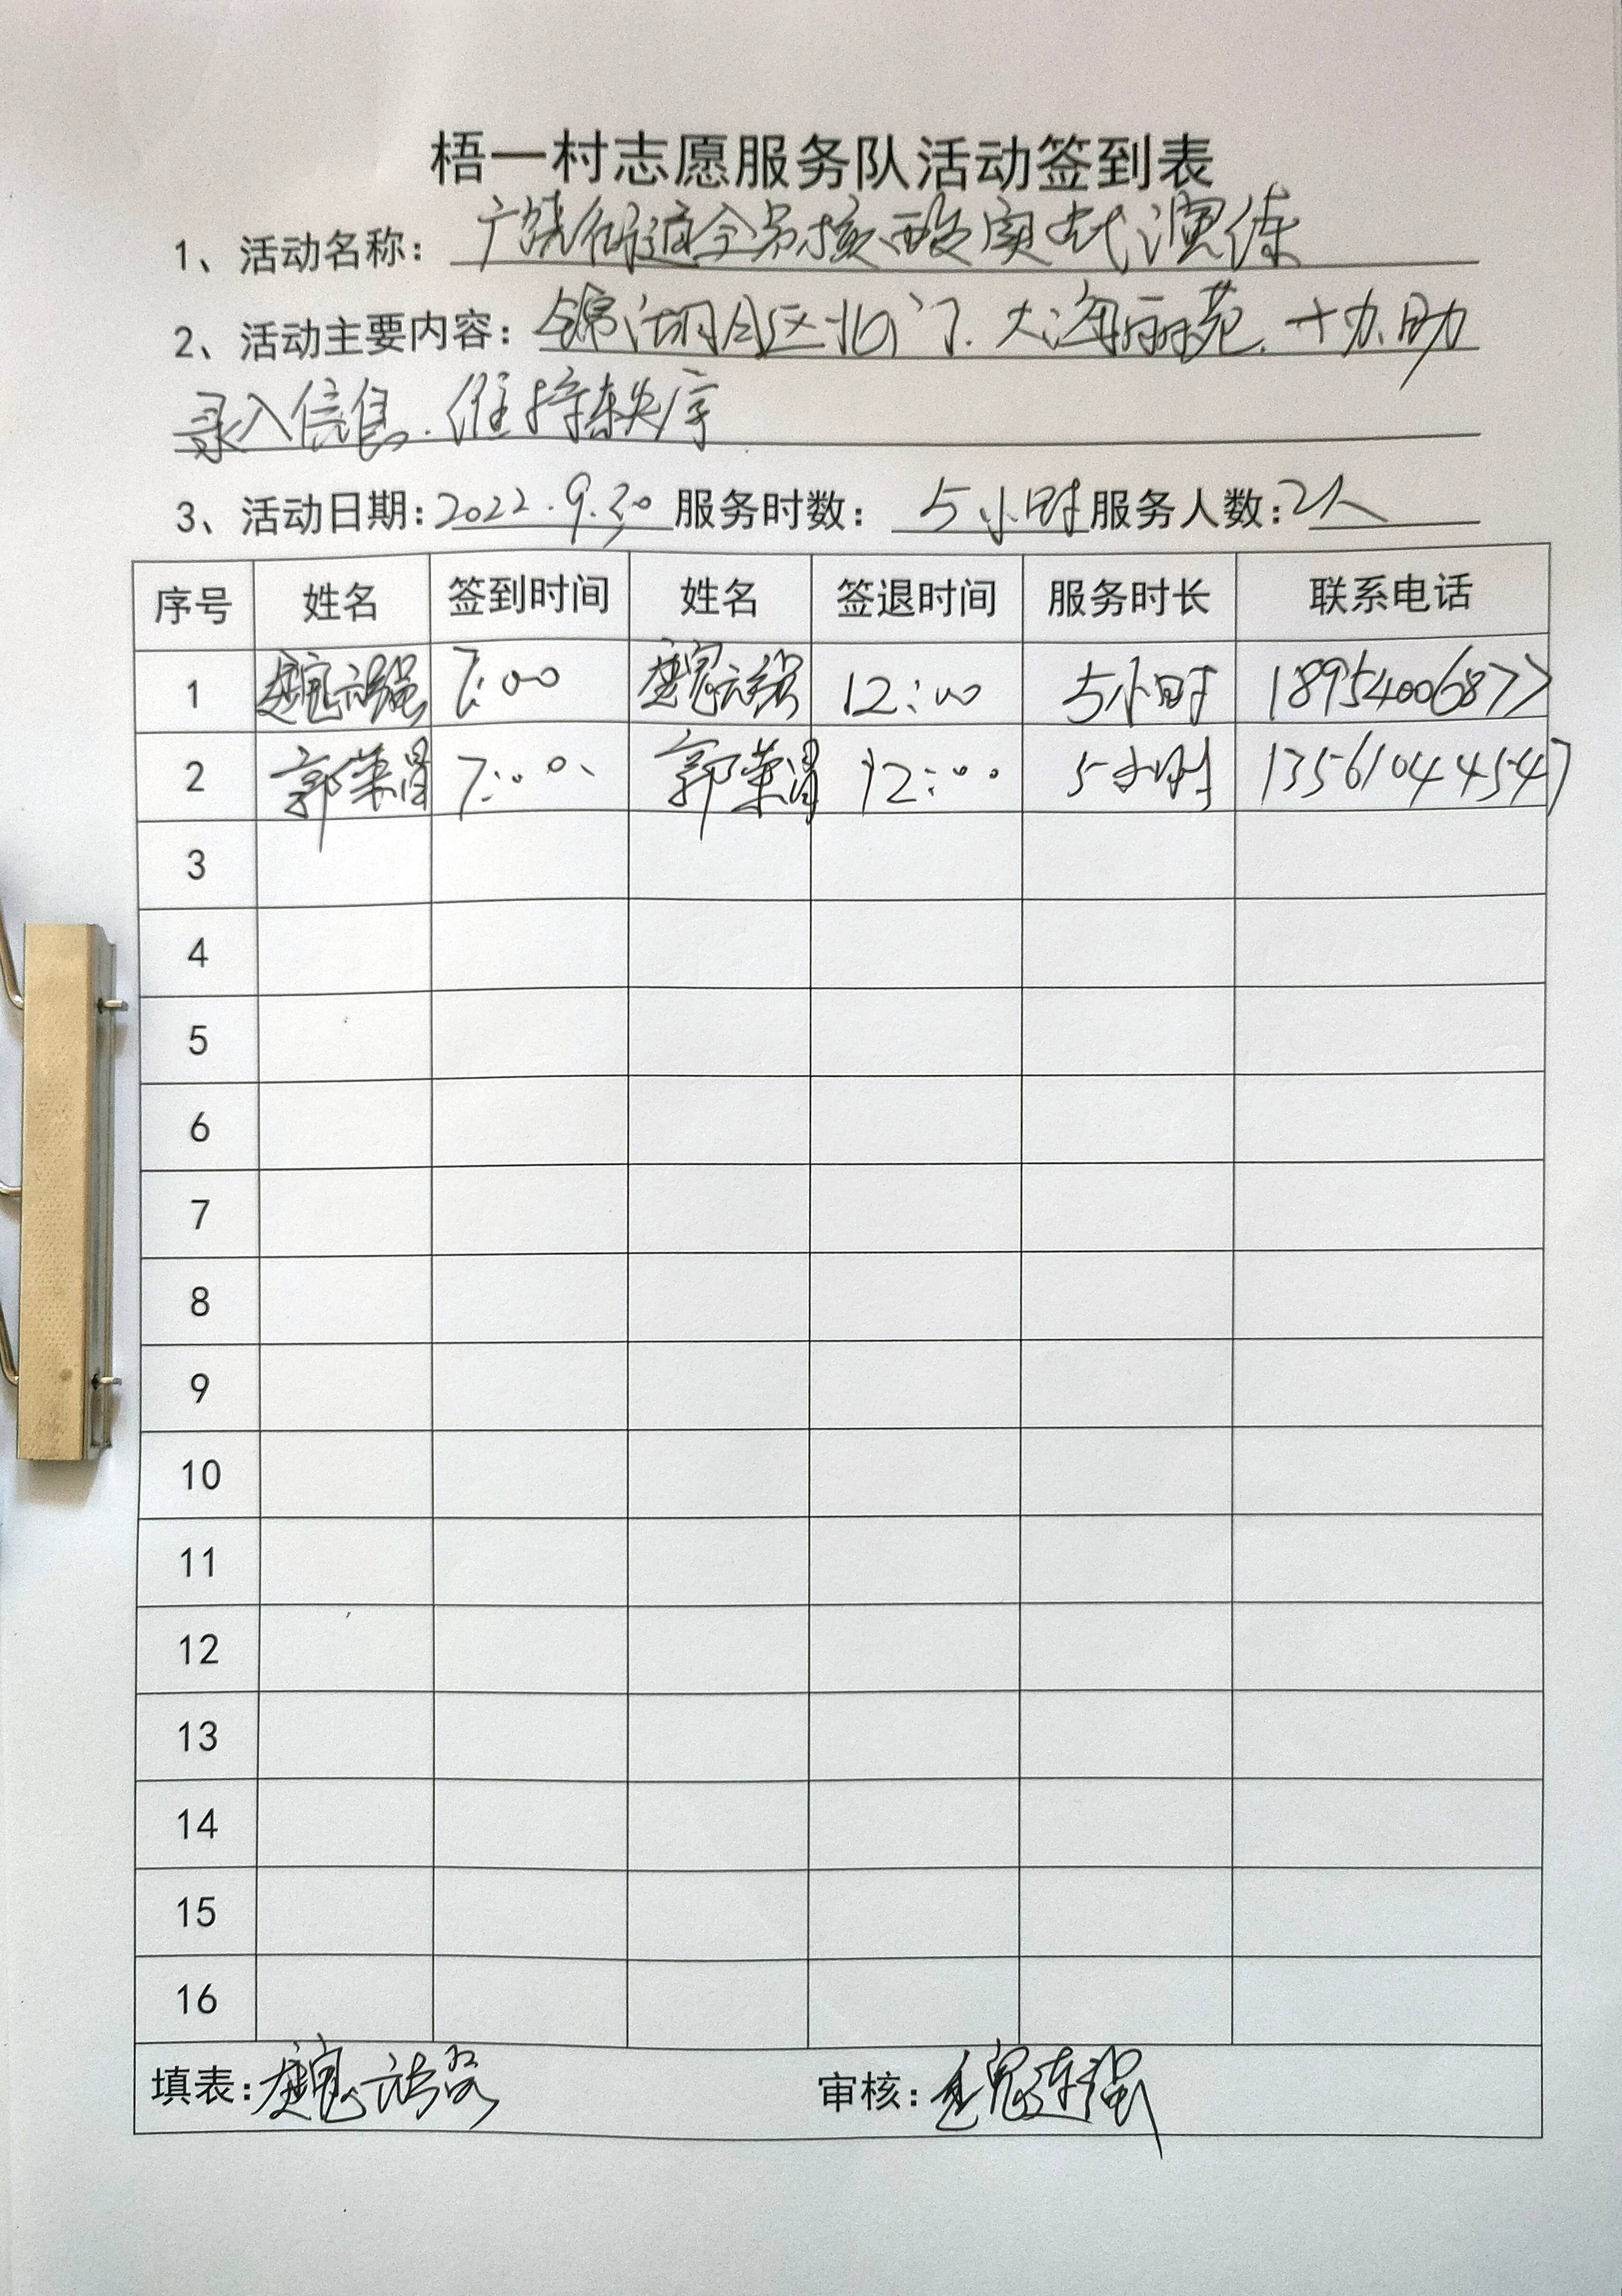 梧一村志愿服务队活动签到表
1、活动名称：广饶街道全员核酸实战演练
2、活动主要内容：锦湖园区北门.大海丽苑.协助
录入信息.维持秩序
3、活动日期：2022.9.30 服务时数：5小时 服务人数：2人
序号 姓名 签到时间 姓名 签退时间 服务时长 联系电话
1 魏 7:00 魏 12:00 5小时 18954006877
2 郭荣 7:00 郭荣 12:00 5小时 13561044547
3
4
5
6
7
8
9
10
11
12
13
14
15
16
填表：魏 审核：魏连强